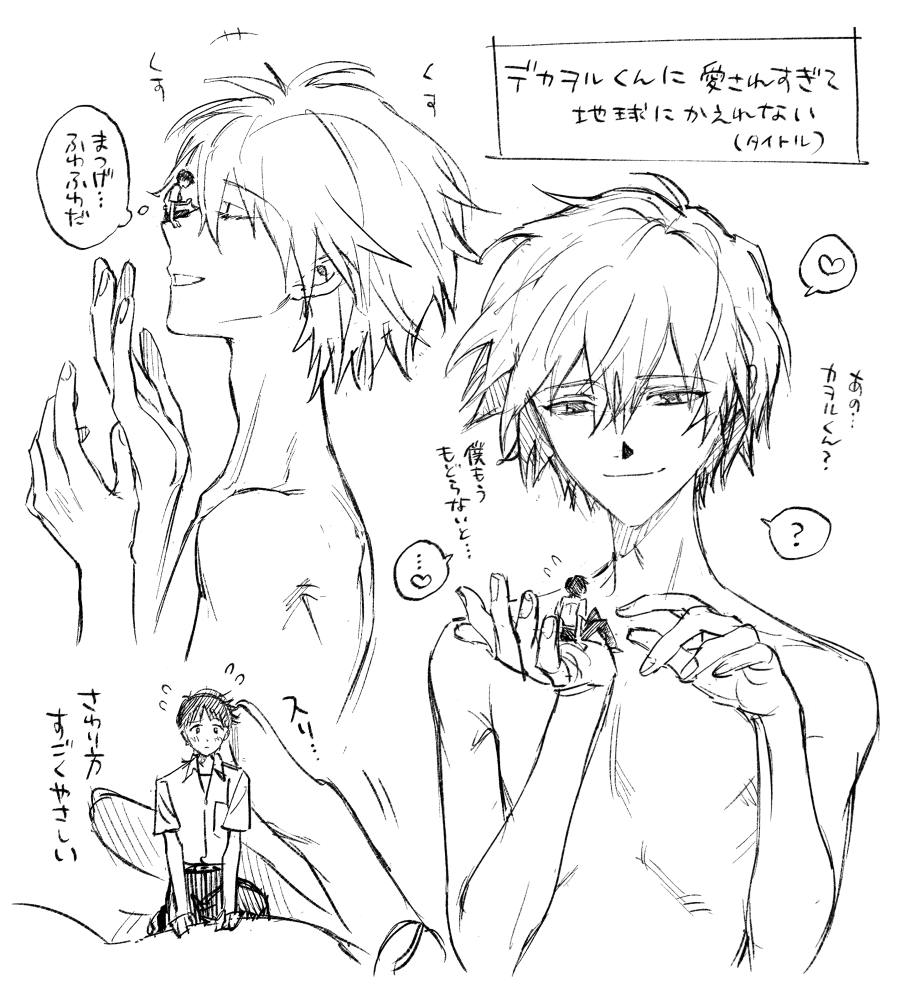 デカヲルくんに愛されすぎて
地球にかえれない
(タイトル)
くす
くす
まつげ…
ふわふわだ
あの…
カヲルくん?
?
僕もう
もどらないと…
…
スリ…
さわり方
すごくやさしい